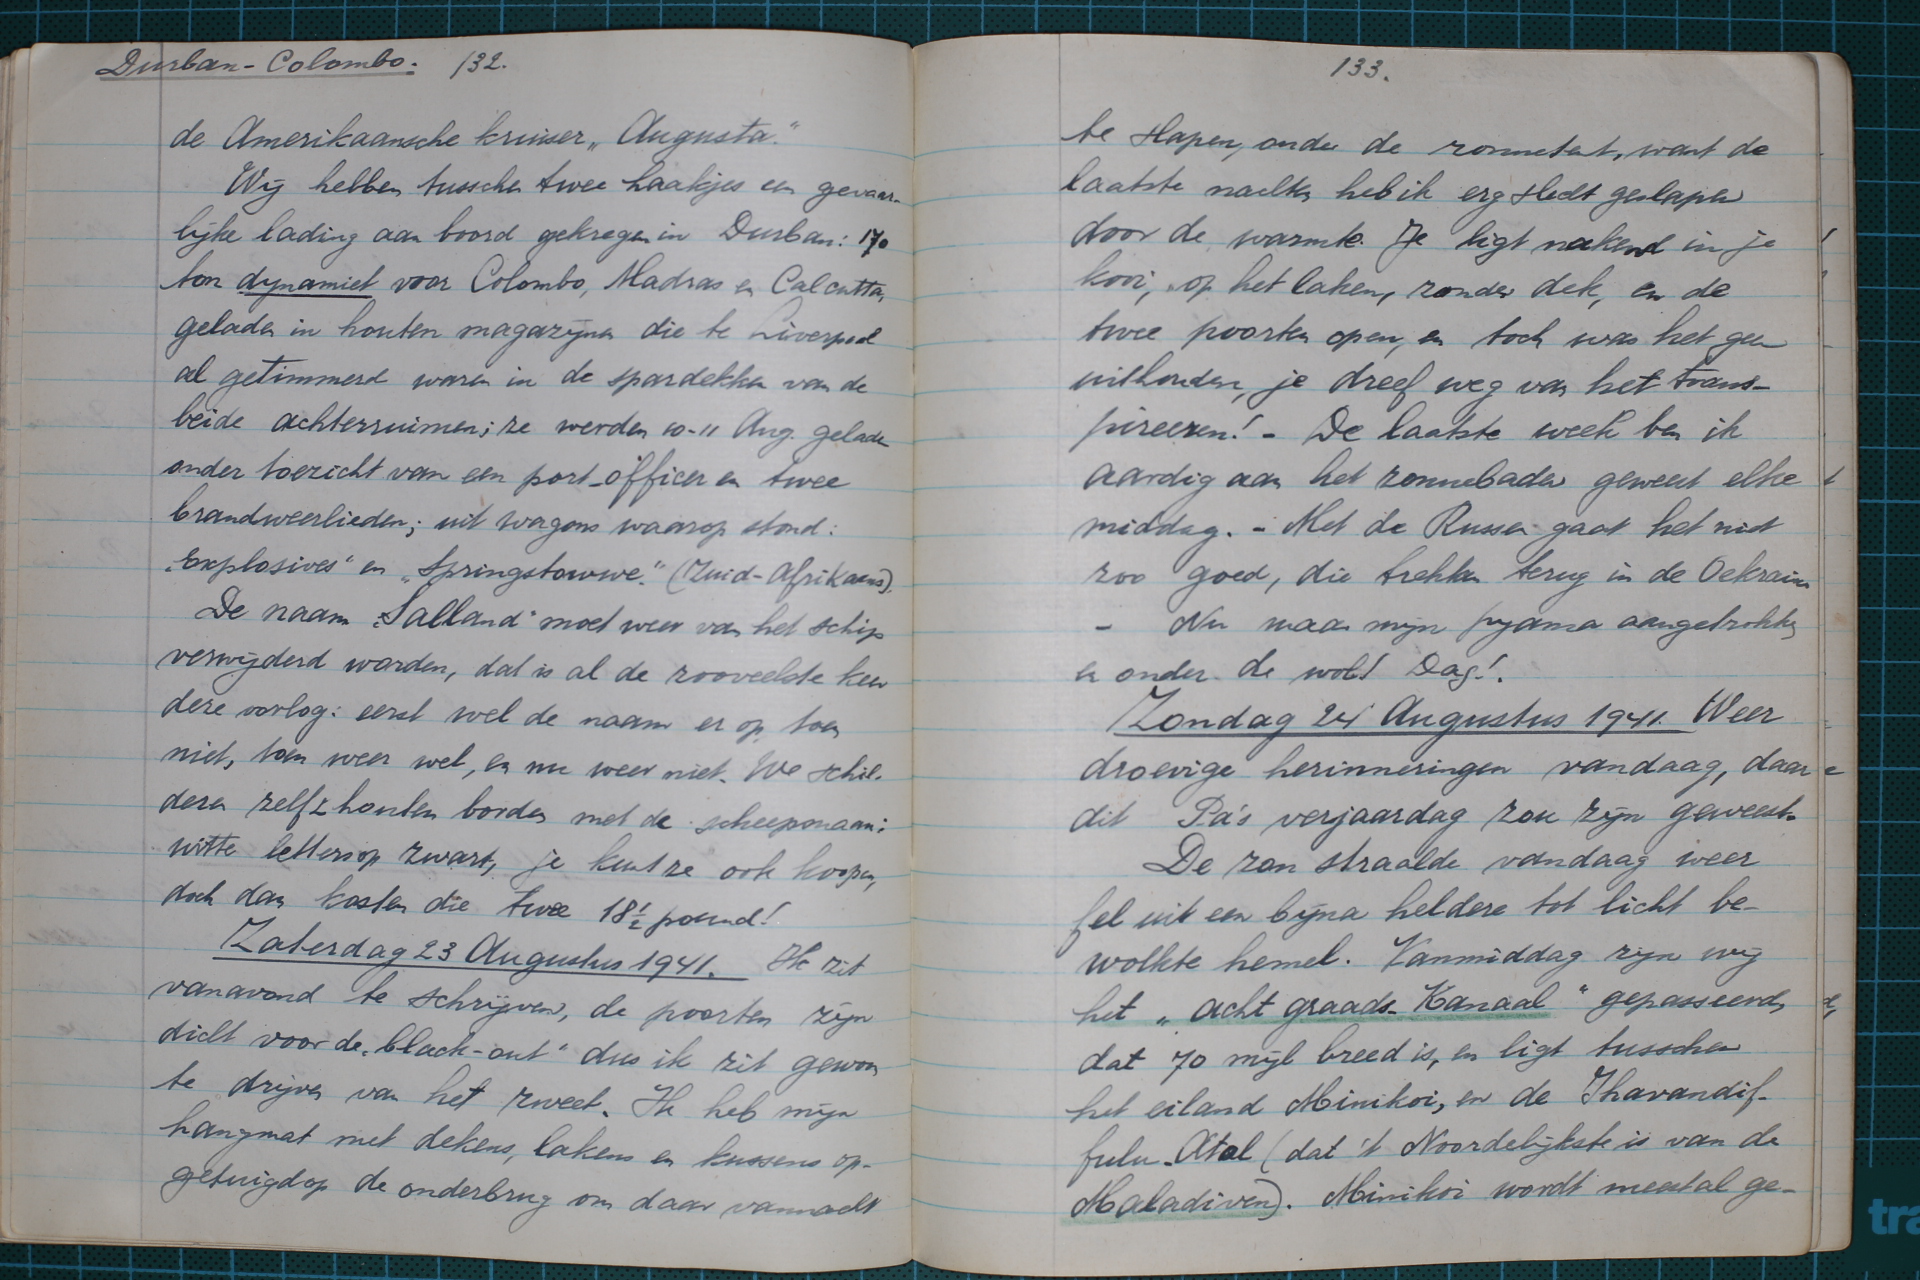 Durban - Colombo. 132.
de Amerikaansche kruiser „Augusta."
Wij hebben tusschen twee haakjes een gevaar-
lijke lading aan boord gekregen in Durban: 170
ton dynamiet voor Colombo, Madras en Calcutta,
geladen in houten magazijnen die te Liverpool
al getimmerd waren in de spardekken van de
beide achterruimen; ze werden 10-11 Aug. geladen
onder toezicht van een port-officer en twee
brandweerlieden; uit wagons waarop stond:
„Explosives" en „Springstowwe." (Zuid-Afrikaans).
De naam „Salland" moet weer van het schip
verwijderd worden, dat is al de zooveelste keer
deze oorlog: eerst wel de naam er op, toen
niet, toen weer wel, en nu weer niet. We schil-
deren zelf 2 houten borden met de scheepsnaam:
witte letters op zwart, je kunt ze ook koopen,
doch dan kosten die twee 18½ pound!
Zaterdag 23 Augustus 1941. Ik zit
vanavond te schrijven, de poorten zijn
dicht voor de „black-out" dus ik zit gewoon
te drijven van het zweet. Ik heb mijn
hangmat met dekens, lakens en kussens op-
getuigd op de onderbrug om daar vannacht
133.
te slapen, onder de zonnetent, want de
laatste nachten heb ik erg slecht geslapen
door de warmte. Je ligt nakend in je
kooi, op het laken, zonder dek, en de
twee poorten open, en toch was het geen
uithouden, je dreef weg van het trans-
pireeren! - De laatste week ben ik
aardig aan het zonnebaden geweest elke
middag. - Met de Russen gaat het niet
zoo goed, die trekken terug in de Oekraine
- Nu maar mijn pyama aangetrokken
en onder de wol! Dag!.
Zondag 24 Augustus 1941. Weer
droevige herinneringen vandaag, daar
dit Pa's verjaardag zou zijn geweest.
De zon straalde vandaag weer
fel uit een bijna heldere tot licht be-
wolkte hemel. Vanmiddag zijn wij
het „acht graads-Kanaal" gepasseerd,
dat 70 mijl breed is, en ligt tusschen
het eiland Minikoi, en de Ihavandif-
fulu-Atol (dat 't Noordelijkste is van de
Maladiven). Minikoi wordt meestal ge-
tra